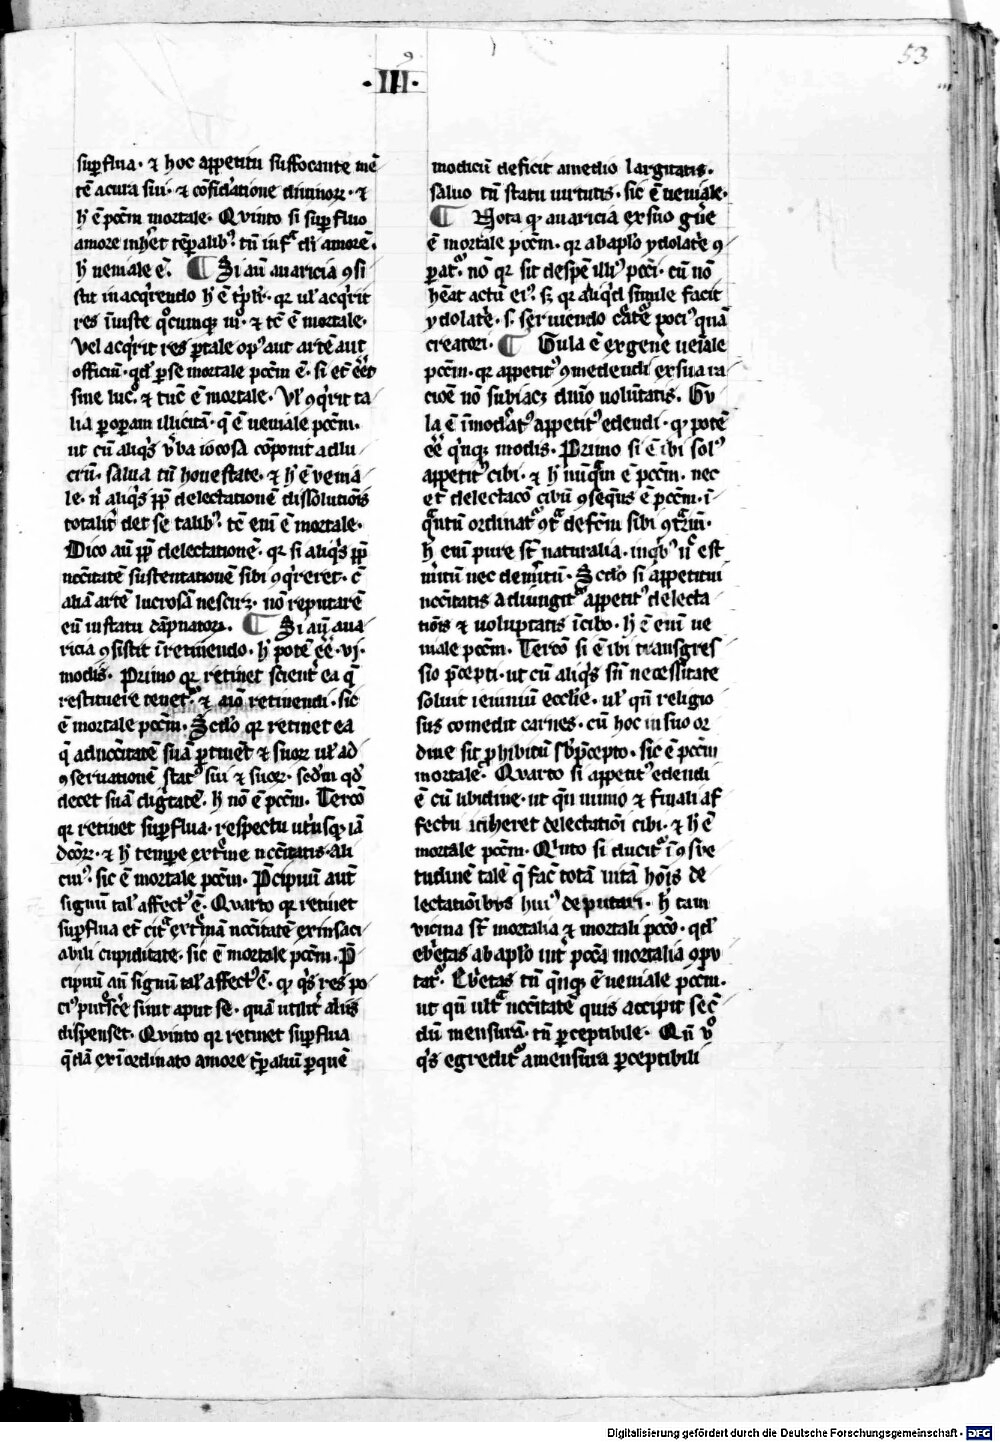 53
·III·
sup̄flua · ⁊ hoc appetitu suffocante mē
tē a cura sui · ⁊ cōsid̓atione diuinoꝝ · ⁊
h̄ ē pc̄cm mortale · Qvinto si sup̄fluo
amore inh̓et tēp̄alibꝰ tn̄ infͣ dī amorē ·
h̄ ueniale ē · ¶ Si aū auaricia ꝯsi
stit in acq̓rendo h̄ ē tp̄lr̓ · qꝛ ul̓ acq̓rit
res iniuste qͦcumqꝫ mͦ · ⁊ tc̄ ē mortale ·
Vel acq̓rit res ꝑ tale opꝰ aut artē aut
officiū · qd̓ ꝑ se mortale pc̄cm ē · si et̄
sine lucͦ · ⁊ tūc ē mortale · Vl̓ ꝯq̓rit ta
lia ꝑ oꝑam illicitā · q̄ ē ueniale pc̄cm ·
ut cū aliq̓s v̓ba iocosa cōponit ad lu
crū · salua tn̄ honestate · ⁊ h̄ ē uenia
le · n̓ aliq̓s ꝓp̄ delectationē dissolutiōis
totalit̓ det se talibꝰ · tc̄ eni ē mortale ·
Dico aū ꝓp̄ delectationē · qꝛ si aliq̓s ꝓp̄
nc̄citatē sustentationē sibi ꝯq̓reret · c̄
aliā artē lucrosā nesciꝛet · nō reputarē
eū in statu dāpnatoꝝ · ¶ Si aū aua
ricia ꝯsistit ī retinendo · h̄ potē ēe̓ · vi ·
modis · Primo qꝛ retinet scient̓ ea q̄
restituere tenetͬ · ⁊ aīo retinendi · sic
ē mortale pc̄cm · Sc̄do qꝛ retinet ea
q̄ ad nc̄citatē suā ꝑtinēt ⁊ suoꝝ ul̓ ad
ꝯseruationē statꝰ sui ⁊ suoꝝ · sed̓m qd̓
decet suā dig̓tatē · h̄ nō ē pc̄cm · Tercō
qꝛ retinet sup̄flua · respectu ut̓usqꝫ iā
dc̄oꝝ · ⁊ h̄ tempe ext̓me nc̄citatis · ali
cuiꝰ · sic ē mortale pc̄cm · P̄cipuū aut̄
signū tal̓ affectꝰ ē · Qvarto qꝛ retinet
sup̄flua et̄ citͣ ext̓mā nc̄citatē ex insaci
abili cupiditate · sic ē mortale pc̄cm · P̄
cipuū aū signū tal̓ affectꝰ ē · qꝫ q̓s res po
ciꝰ put̓sc̄e sinit aput se · quā utilit̓ aliis
dispenset · Qvinto qꝛ retinet sup̄flua
q̄dā ex īordinato amore tp̄aliū ꝑ quē
modicū deficit a medio largitatis ·
saluo tn̄ statu uirtutis · sic ē ueniale ·
¶ Nota qꝫ auaricia ex suo gn̄e
ē mortale pc̄cm · qꝛ ab aplo ydolatē ꝯ
ꝑatͬ · nō qꝛ sit despē illiꝰ pc̄ci · cū nō
hēat actū eiꝰ · sꝫ qꝛ aliq̓d simile facit
ydolatē · s · seruiendo c̓atͤ pociꝰ quā
creatori · ¶ Gula ē ex gene̓ ueīale
pc̄cm · qꝛ appetitꝰ ꝯmedendi ex sua ra
cioē nō subiacꝫ dn̄io uolūtatis · Gu
la ē īmod̓atꝰ appetitꝰ edendi · qꝫ potē
ēe̓ q̓nqꝫ modis · Primo si ē ibi solꝰ
appetitꝰ cibi · ⁊ h̄ nūq̄m ē pc̄cm · nec
et̄ delectacō cibū ꝯseq̄ns ē pc̄cm · ī
qͣntū ordinatͬ ꝯtͣ defc̄m sibi ꝯt̓ium ·
h̄ eni pure st̄ naturalia · in qͥbꝰ n̓ est
m̓itū nec dem̓itū · Sc̄do si appetitui
nc̄citatis adiungitͬ appetitꝰ delecta
tiōis ⁊ uoluptatis ī cibo · h̄ ē eni ue
niale pc̄cm · Tercō si ē ibi transgres
sio p̄cepti · ut cū aliq̓s sn̄ necessitate
soluit ieiuniū ecclie · ul̓ qn̄ religio
sus comedit carnes · cū hoc in suo or
dine sit ꝓhibitū sb̓ p̄cepto · sic ē pc̄cm
mortale · Qvarto si appetitꝰ edendi
ē cū libidine · ut q̄n nimio ⁊ finali af
fectu īhēret delectatiōi cibi · ⁊ h̄ ē
mortale pc̄cm · Qͥnto si ducitͬ ī ꝯsve
tudinē talē q̄ fac̄ totā uitā hōis de
lectatiōibvs huiꝰ deputari · h̄ tam
vicina st̄ mortalia ⁊ mortali pcc̄o · qd̓
eb̓etas ab aplo int̓ pcc̄a mortalia ꝯpv
tatͬ · Eb̓etas tn̄ q̄nqꝫ ē ueniale pc̄cm ·
ut qn̄ ultͣ nc̄citatē quis accipit sec̄
dū mensurā · tn̄ ꝑceptibile · Qn̄ vͦ
q̓s egreditͬ a mensura ꝑceptibili
Digitalisierung gefördert durch die Deutsche Forschungsgemeinschaft - DFG